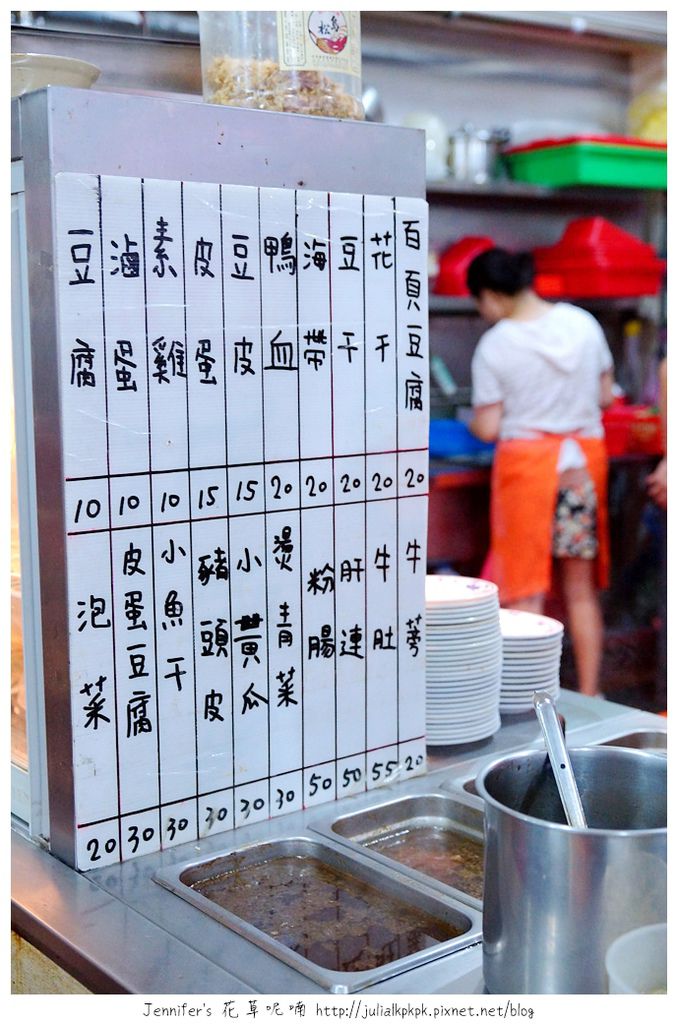 鳥松
百頁豆腐 20
花干 20
豆干 20
海帶 20
鴨血 20
豆皮 15
皮蛋 15
素雞 10
滷蛋 10
豆腐 10
牛蒡 20
牛肚 55
肝連 50
粉腸 50
燙青菜 30
小黃瓜 30
豬頭皮 30
小魚干 30
皮蛋豆腐 30
泡菜 20
Jennifer's 花草呢喃 http://julialkpkpk.pixnet.net/blog